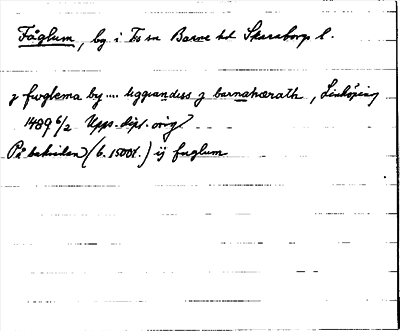 Fåglum, by i Ts sn Barne hd Skaraborgs l.
j fwglema by .... liggiandess j barnahæradh, Linköping
1489 6/2 Upps. dipl. orig
På baksidan (b. 1500t.) ij fuglum